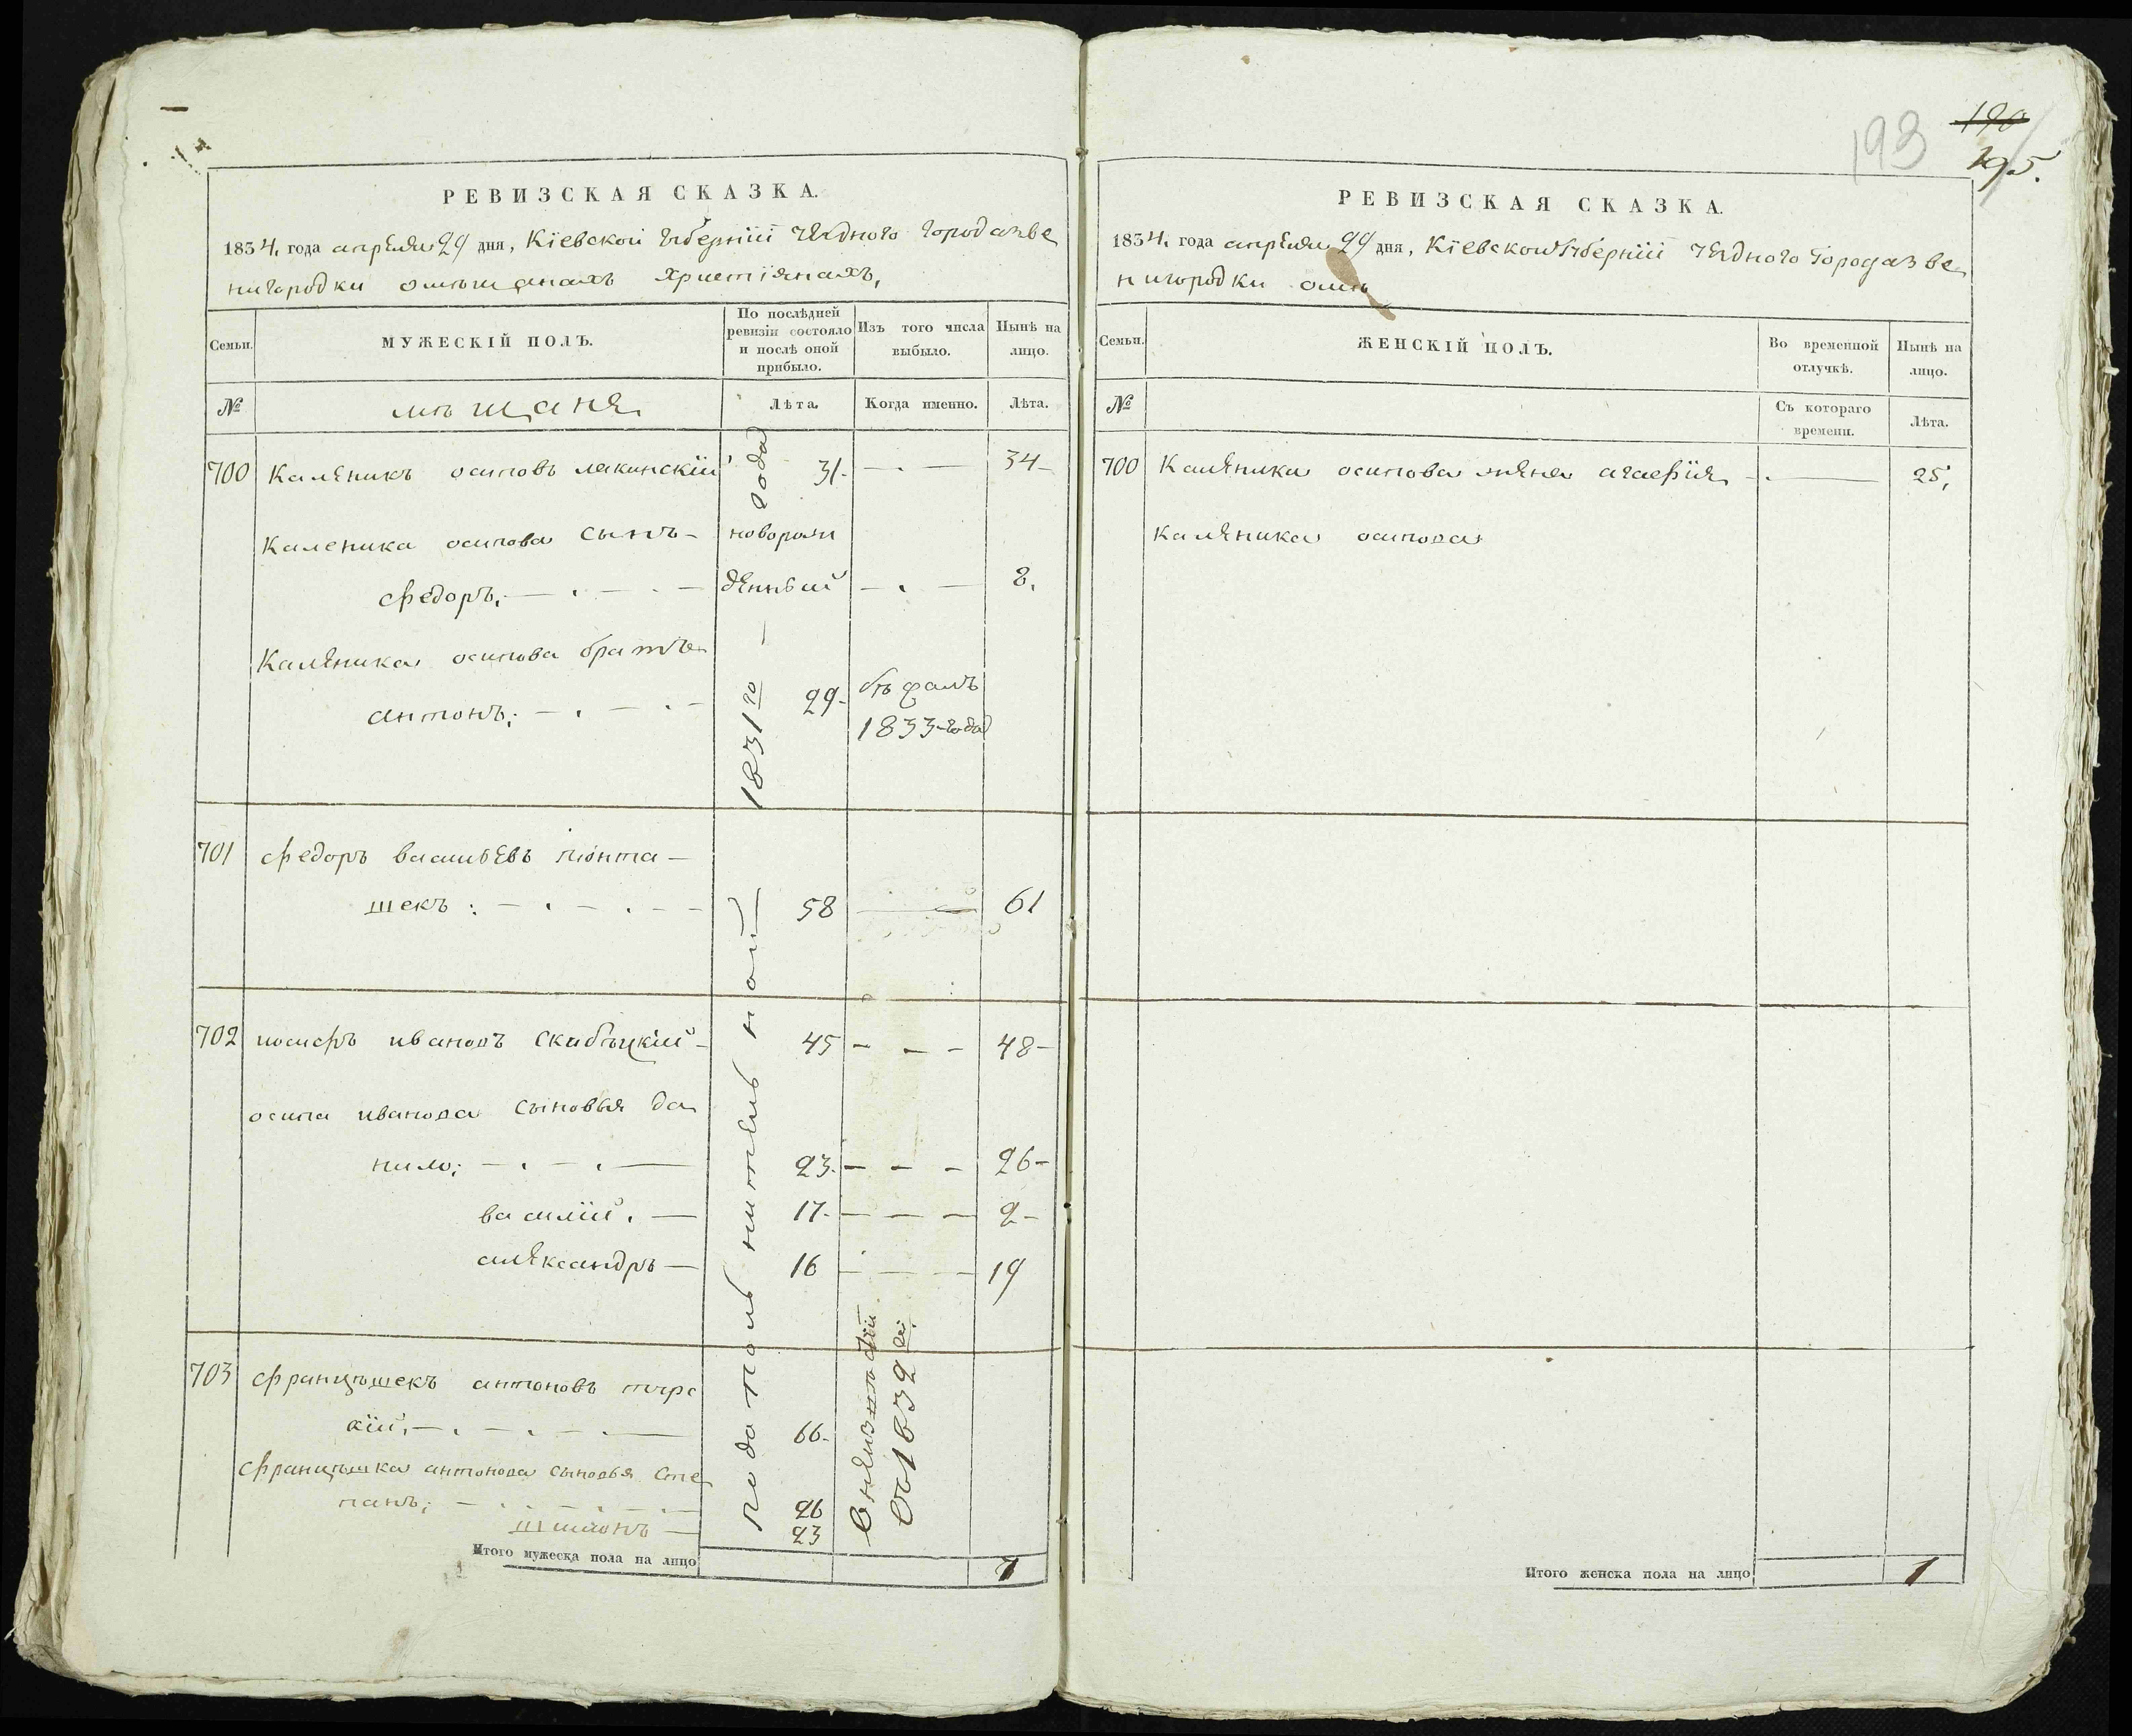 РЕВИЗСКАЯ СКАЗКА.
1834, года апреля 29 дня, Кіевской губерніи уездного города зве
нигородки о мѣщанахъ христіянахъ,
Семьи.
МУЖЕСКІЙ ПОЛЪ.
По послѣдней ревизіи состояло и послѣ оной прибыло.
Изъ того числа выбыло.
Нынѣ на лицо.
№
мѣщаня
Лѣта.
Когда именно.
Лѣта.
700 Каленикъ осиповъ лакинскій 31- 34-
Каленика осипова сынъ- новорож
федоръ, денный 8,
Каленика осипова братъ
антонъ; 29- бѣжалъ
1833 года
701 федоръ васильевъ понта-
шекъ: 58 61
702 иосифъ ивановъ скибицкій- 45 48-
осипа иванова сыновья да
нило; 23- 26-
василій, 17- 2-
александръ 16 19
703 францышекъ антоновъ турс
кій, 66-
францышка антонова сыновья сте
панъ; 26
шимонъ 23
по дополнительной
1831го года
1832
Итого мужеска пола на лицо 7
193
190
195.
РЕВИЗСКАЯ СКАЗКА.
1834, года апреля 29 дня, Кіевской губерніи уездного города зве
нигородки о мѣ
Семьи.
ЖЕНСКІЙ ПОЛЪ.
Во временной отлучкѣ.
Нынѣ на лицо.
№
Съ котораго времени.
Лѣта.
700 Каленика осипова жена агафия 25,
Каленика осипова
Итого женска пола на лицо 1